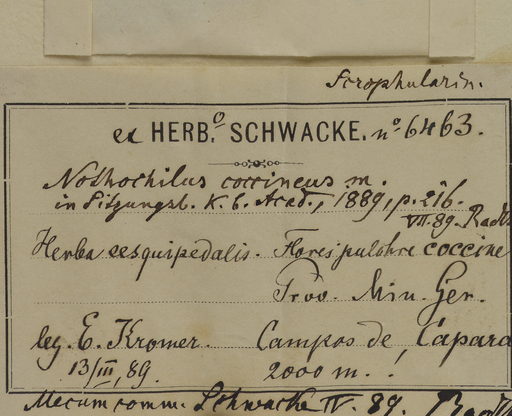 Scrophularin.
ex HERB.º SCHWACKE. nº 6463.
Nothochilus coccineus m.
in Sitzungsb. K. b. Acad., 1889, p. 216.
VII. 89. Radlk
Herba sesquipedalis. Flores pulchre coccine
Prov. Min. Ger.
leg. E. Kromer. Campos de Capara
13/III, 89. 2000 m.
Mecum comm. Schwacke IV. 89. Radlk